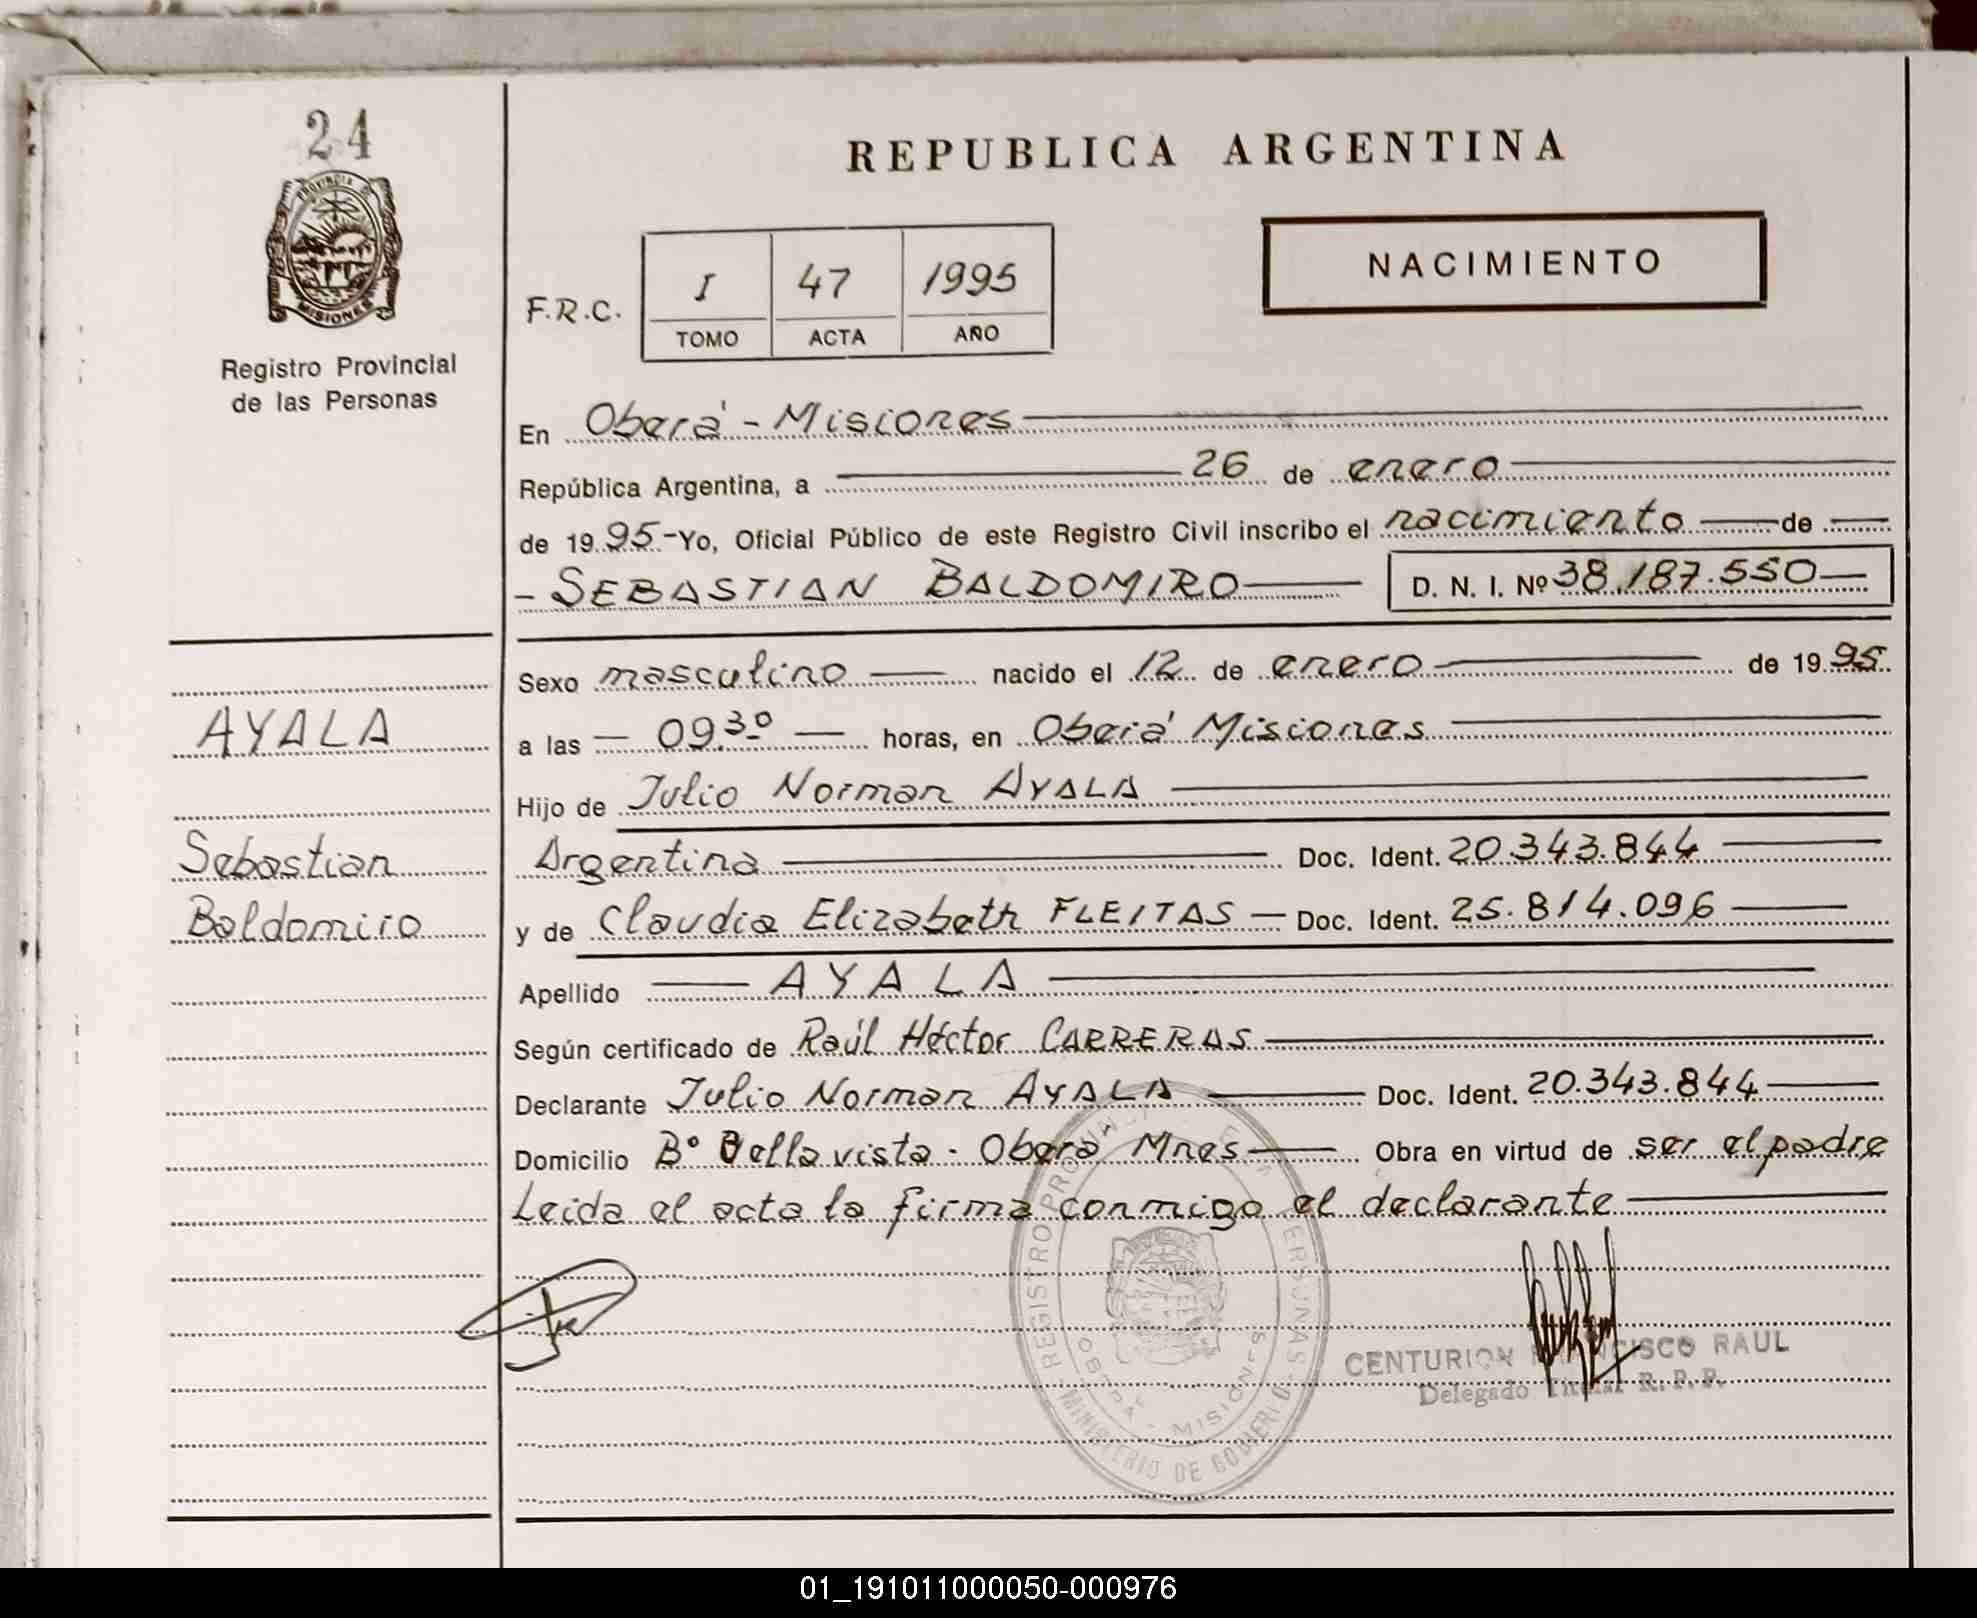 24
PROVINCIA DE
MISIONES
Registro Provincial
de las Personas
REPUBLICA ARGENTINA
NACIMIENTO
F.R.C.
I 47 1995
TOMO ACTA AÑO
En Oberá - Misiones
República Argentina, a 26 de enero
de 19 95 - Yo, Oficial Público de este Registro Civil inscribo el nacimiento de
- SEBASTIAN BALDOMIRO D. N. I. Nº 38.187.550
AYALA
Sebastian
Baldomiro
Sexo masculino nacido el 12 de enero de 19 95
a las — 09.30 — horas, en Oberá Misiones
Hijo de Julio Norman AYALA
Argentina Doc. Ident. 20.343.844
y de Claudia Elizabeth FLEITAS — Doc. Ident. 25.814.096
Apellido AYALA
Según certificado de Raúl Héctor CARRERAS
Declarante Julio Norman AYALA Doc. Ident. 20.343.844
Domicilio Bº Bella vista - Oberá Mnes Obra en virtud de ser el padre
Leida el acta la firma conmigo el declarante
REGISTRO PROVINCIAL DE LAS PERSONAS
OBERA - MISIONES
MINISTERIO DE GOBIERNO
CENTURION FRANCISCO RAUL
Delegado Titular R. P. P.
01_191011000050-000976